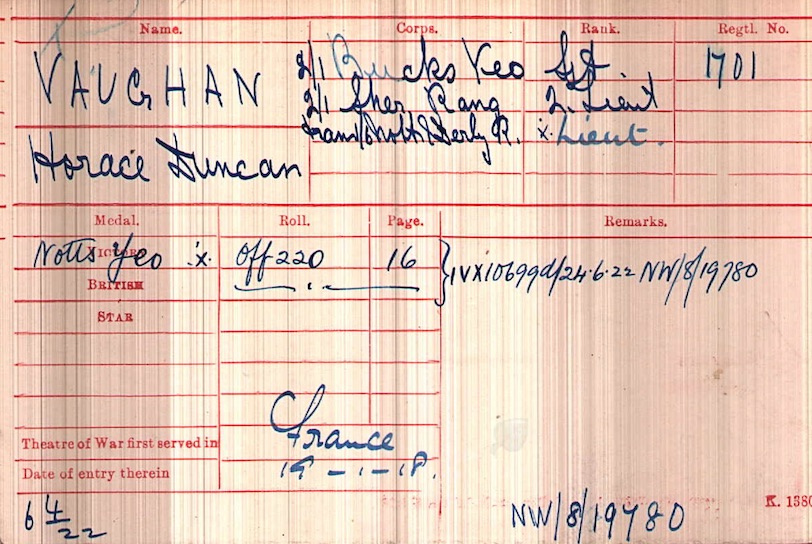 Name. Corps. Rank. Regtl. No.
VAUGHAN 2/1 Bucks Yeo Sgt 1701
2/1 Sher Rang 2. Lieut
Horace Duncan trans/Notts & Derby R. x. Lieut.
Medal. Roll. Page. Remarks.
VICTORY Notts Yeo .x. Off 220 16 } IVX/10699d/24.6.22 NW/8/19780
BRITISH
STAR
Theatre of War first served in France
Date of entry therein 19-1-18.
6 4/22 NW/8/19780 K. 1380